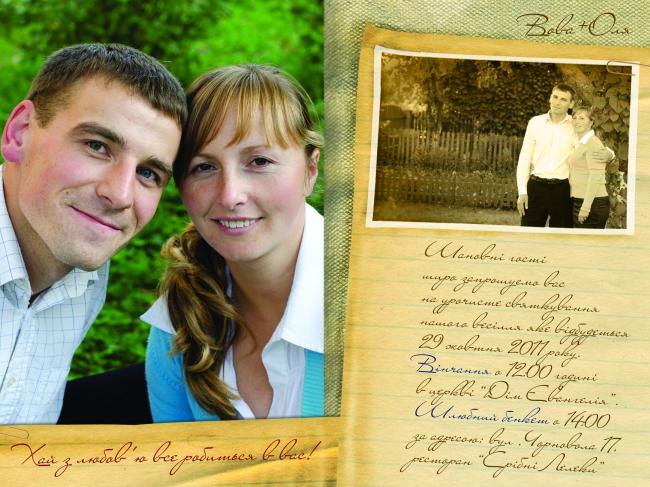 Вова + Оля
Шановні гості
щиро запрошуємо вас
на урочисте святкування
нашого весілля яке відбудеться
29 жовтня 2011 року.
Вінчання о 12.00 годині
в церкві "Дім Євангелія".
Шлюбний бенкет о 14.00
за адресою: вул. Чорновола 17.
ресторан "Срібні Лелеки"
Хай з любов'ю все робиться в вас!